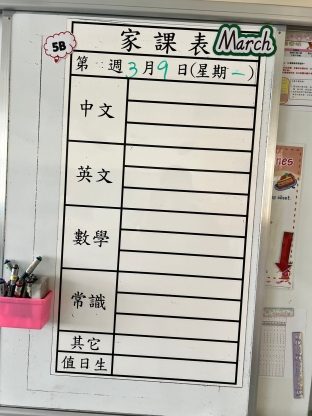 5B
家課表
March
第 週3月9日(星期一)
中文
英文
數學
常識
其它
值日生